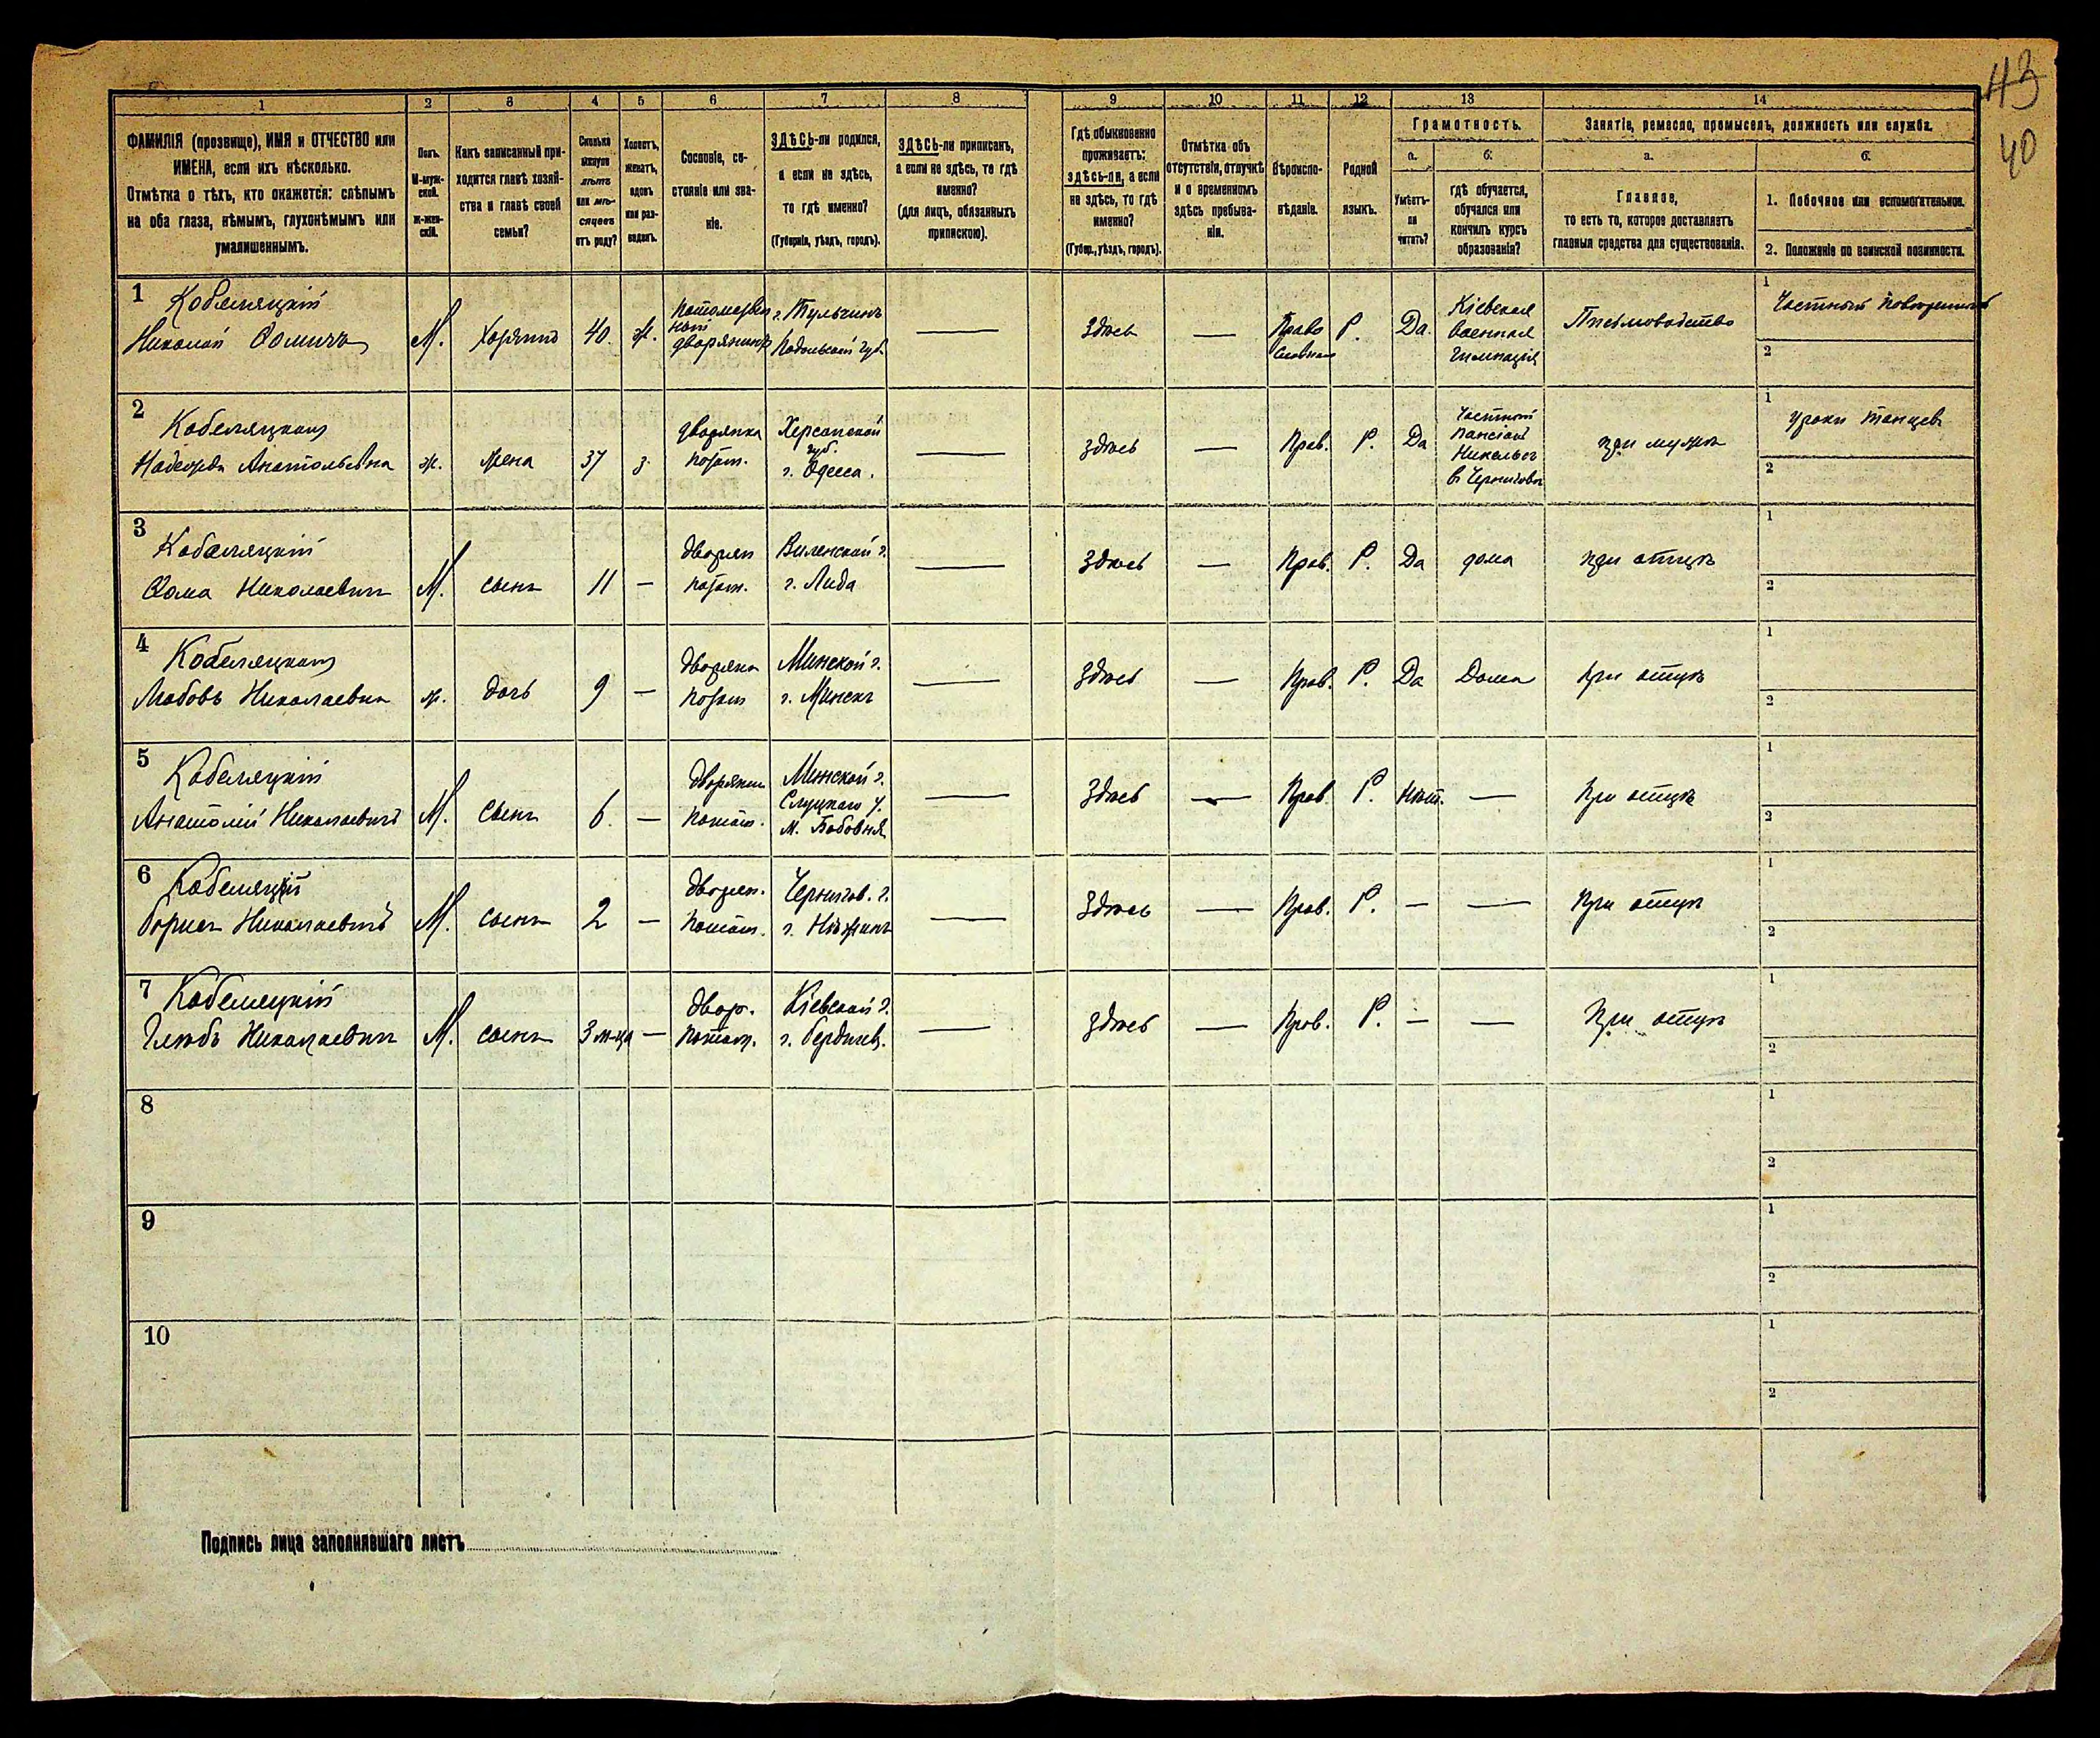 43
40
1 2 3 4 5 6 7 8 9 10 11 12 13 14
ФАМИЛІЯ (прозвище), ИМЯ и ОТЧЕСТВО или
ИМЕНА, если ихъ нѣсколько.
Отмѣтка о тѣхъ, кто окажется: слѣпымъ
на оба глаза, нѣмымъ, глухонѣмымъ или
умалишеннымъ.
Полъ.
М-муж-
ской.
Ж-жен-
скій.
Какъ записанный при-
ходится главѣ хозяй-
ства и главѣ своей
семьи?
Сколько
минуло
лѣтъ
или мѣ-
сяцевъ
отъ роду?
Холостъ,
женатъ,
вдовъ
или раз-
веденъ.
Сословіе, со-
стояніе или зва-
ніе.
ЗДѢСЬ-ли родился,
а если не здѣсь,
то гдѣ именно?
(Губернія, уѣздъ, городъ).
ЗДѢСЬ-ли приписанъ,
а если не здѣсь, то гдѣ
именно?
(для лицъ, обязанныхъ
припискою).
Гдѣ обыкновенно
проживаетъ:
здѣсь-ли, а если
не здѣсь, то гдѣ
именно?
(Губер., уѣздъ, городъ).
Отмѣтка объ
отсутствіи, отлучкѣ
и о временномъ
здѣсь пребыва-
ніи.
Вѣроиспо-
вѣданіе.
Родной
языкъ.
Грамотность.
а.
Умѣетъ-
ли
читать?
б.
гдѣ обучается,
обучался или
кончилъ курсъ
образованія?
Занятіе, ремесло, промыселъ, должность или служба.
а.
Главное,
то есть то, которое доставляетъ
главныя средства для существованія.
б.
1. Побочное или вспомогательное.
2. Положеніе по воинской повинности.
1 Кобеляцкій
Николай Ѳомичъ
М. Хозяинъ 40. ж.
дворянинъ
г. Тульчинъ
Подольской губ.
—
здѣсь — Право
славное
Р. Да.
Кіевская
военная
гимназія
Письмоводство
1 Частный
2
2 Кобеляцкая
Надежда Анатольевна
ж. жена 37 з.
дворянка
потом.
Херсонской
губ.
г. Одесса.
—
здѣсь — Прав. Р. Да
Частный
пансіонъ
в Черниговѣ
при мужѣ
1 уроки танцевъ
2
3 Кобеляцкій
Ѳома Николаевичъ
М. сынъ 11 —
дворян
потом.
Виленской г.
г. Лида
—
здѣсь — Прав. Р. Да дома при отцѣ
1
2
4 Кобеляцкая
Любовь Николаевна
ж. дочь 9 —
дворянк
потом
Минской г.
г. Минскъ
—
здѣсь — Прав. Р. Да Дома при отцѣ
1
2
5 Кобеляцкій
Анатолій Николаевичъ
М. сынъ 6. —
дворянин
потом.
Минской г.
Слуцкаго у.
м. Бобовня
—
здѣсь — Прав. Р. Нѣт. — При отцѣ
1
2
6 Кобеляцкій
Борисъ Николаевичъ
М. сынъ 2 —
дворян.
потом.
Чернигов. г.
г. Нѣжинъ
—
здѣсь — Прав. Р. — — При отцѣ
1
2
7 Кобеляцкій
Глѣбъ Николаевичъ
М. сынъ 3 м-ца —
двор.
потом.
Кіевской г.
г. Бердичев.
—
здѣсь — Прав. Р. — — При отцѣ
1
2
8
1
2
9
1
2
10
1
2
Подпись лица заполнявшаго листъ